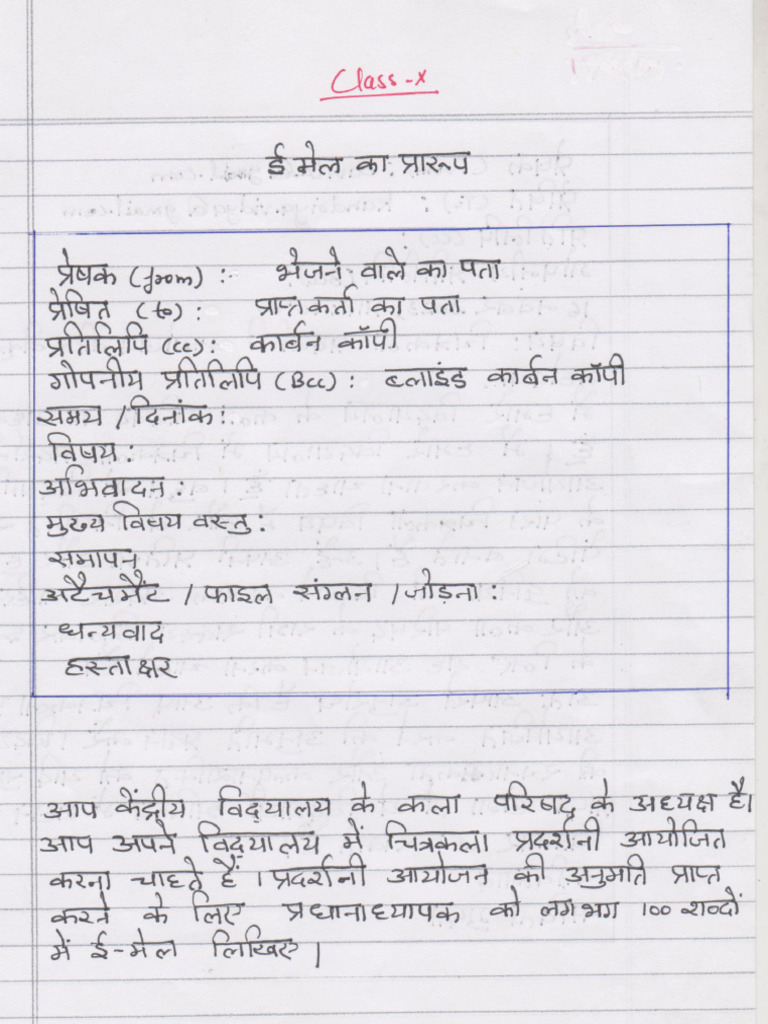 Class-X
ई मेल का प्रारूप
प्रेषक (from) :- भेजने वाले का पता
प्रेषित (to) : प्राप्तकर्ता का पता
प्रतिलिपि (cc) : कार्बन कॉपी
गोपनीय प्रतिलिपि (Bcc) : ब्लाइंड कार्बन कॉपी
समय / दिनांक :
विषय :
अभिवादन :
मुख्य विषय वस्तु :
समापन
अटैचमैंट / फाइल संग्लन / जोड़ना :
धन्यवाद
हस्ताक्षर
आप केंद्रीय विद्यालय के कला परिषद् के अध्यक्ष है।
आप अपने विद्यालय में चित्रकला प्रदर्शनी आयोजित
करना चाहते हैं । प्रदर्शनी आयोजन की अनुमति प्राप्त
करने के लिए प्रधानाध्यापक को लगभग 100 शब्दों
में ई-मेल लिखिए |